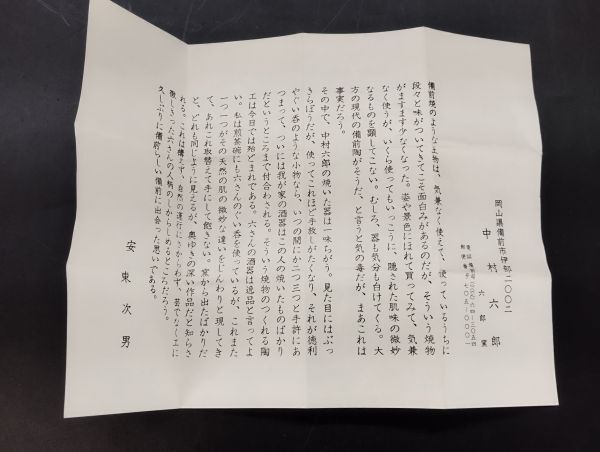 岡山縣備前市伊部二〇〇二
中村六郎
六郎窯
備前焼のような土物は、気兼なく使えて、使っているうちに
段々と味がついてきてこそ面白みがあるのだが、そういう焼物
がますます少なくなった。姿や景色にほれて買ってみて、気兼
なく使うが、いくら使ってもいっこうに、隠された肌味の微妙
なるものを顕してこない。むしろ、器も気分も白けてくる。大
方の現代の備前陶がそうだ、と言うと気の毒だが、まあこれは
事実だろう。
その中で、中村六郎の焼いた器は一味ちがう。見た目にはぶっ
きらぼうだが、使ってこれほど手放しがたくなり、それが徳利
やぐい呑のような小物なら、いつの間にか二つ三つと手許にあ
つまって、ついには我が家の酒器はこの人の焼いたものばかり
だというところまで付合わされる。そういう焼物のつくれる陶
工は今日では殆どまれである。六さんの酒器は逸品と言ってよ
い。私は煎茶碗にも六さんのぐい呑を使っているが、これまた
一つ一つがその天然の肌の微妙な違いをじんわりと現してき
て、あれこれ取替えて手にして飽きない。窯から出たばかりだ
と、どれも同じように見えるが、奥ゆきの深い作品だと知らさ
れる。これは構えず、自然の運行にさからわず、芸でなく工に
徹しきった六さんの人柄のしからしめるところだろう。
久しぶりに備前らしい備前に出会った思いである。
安東次男